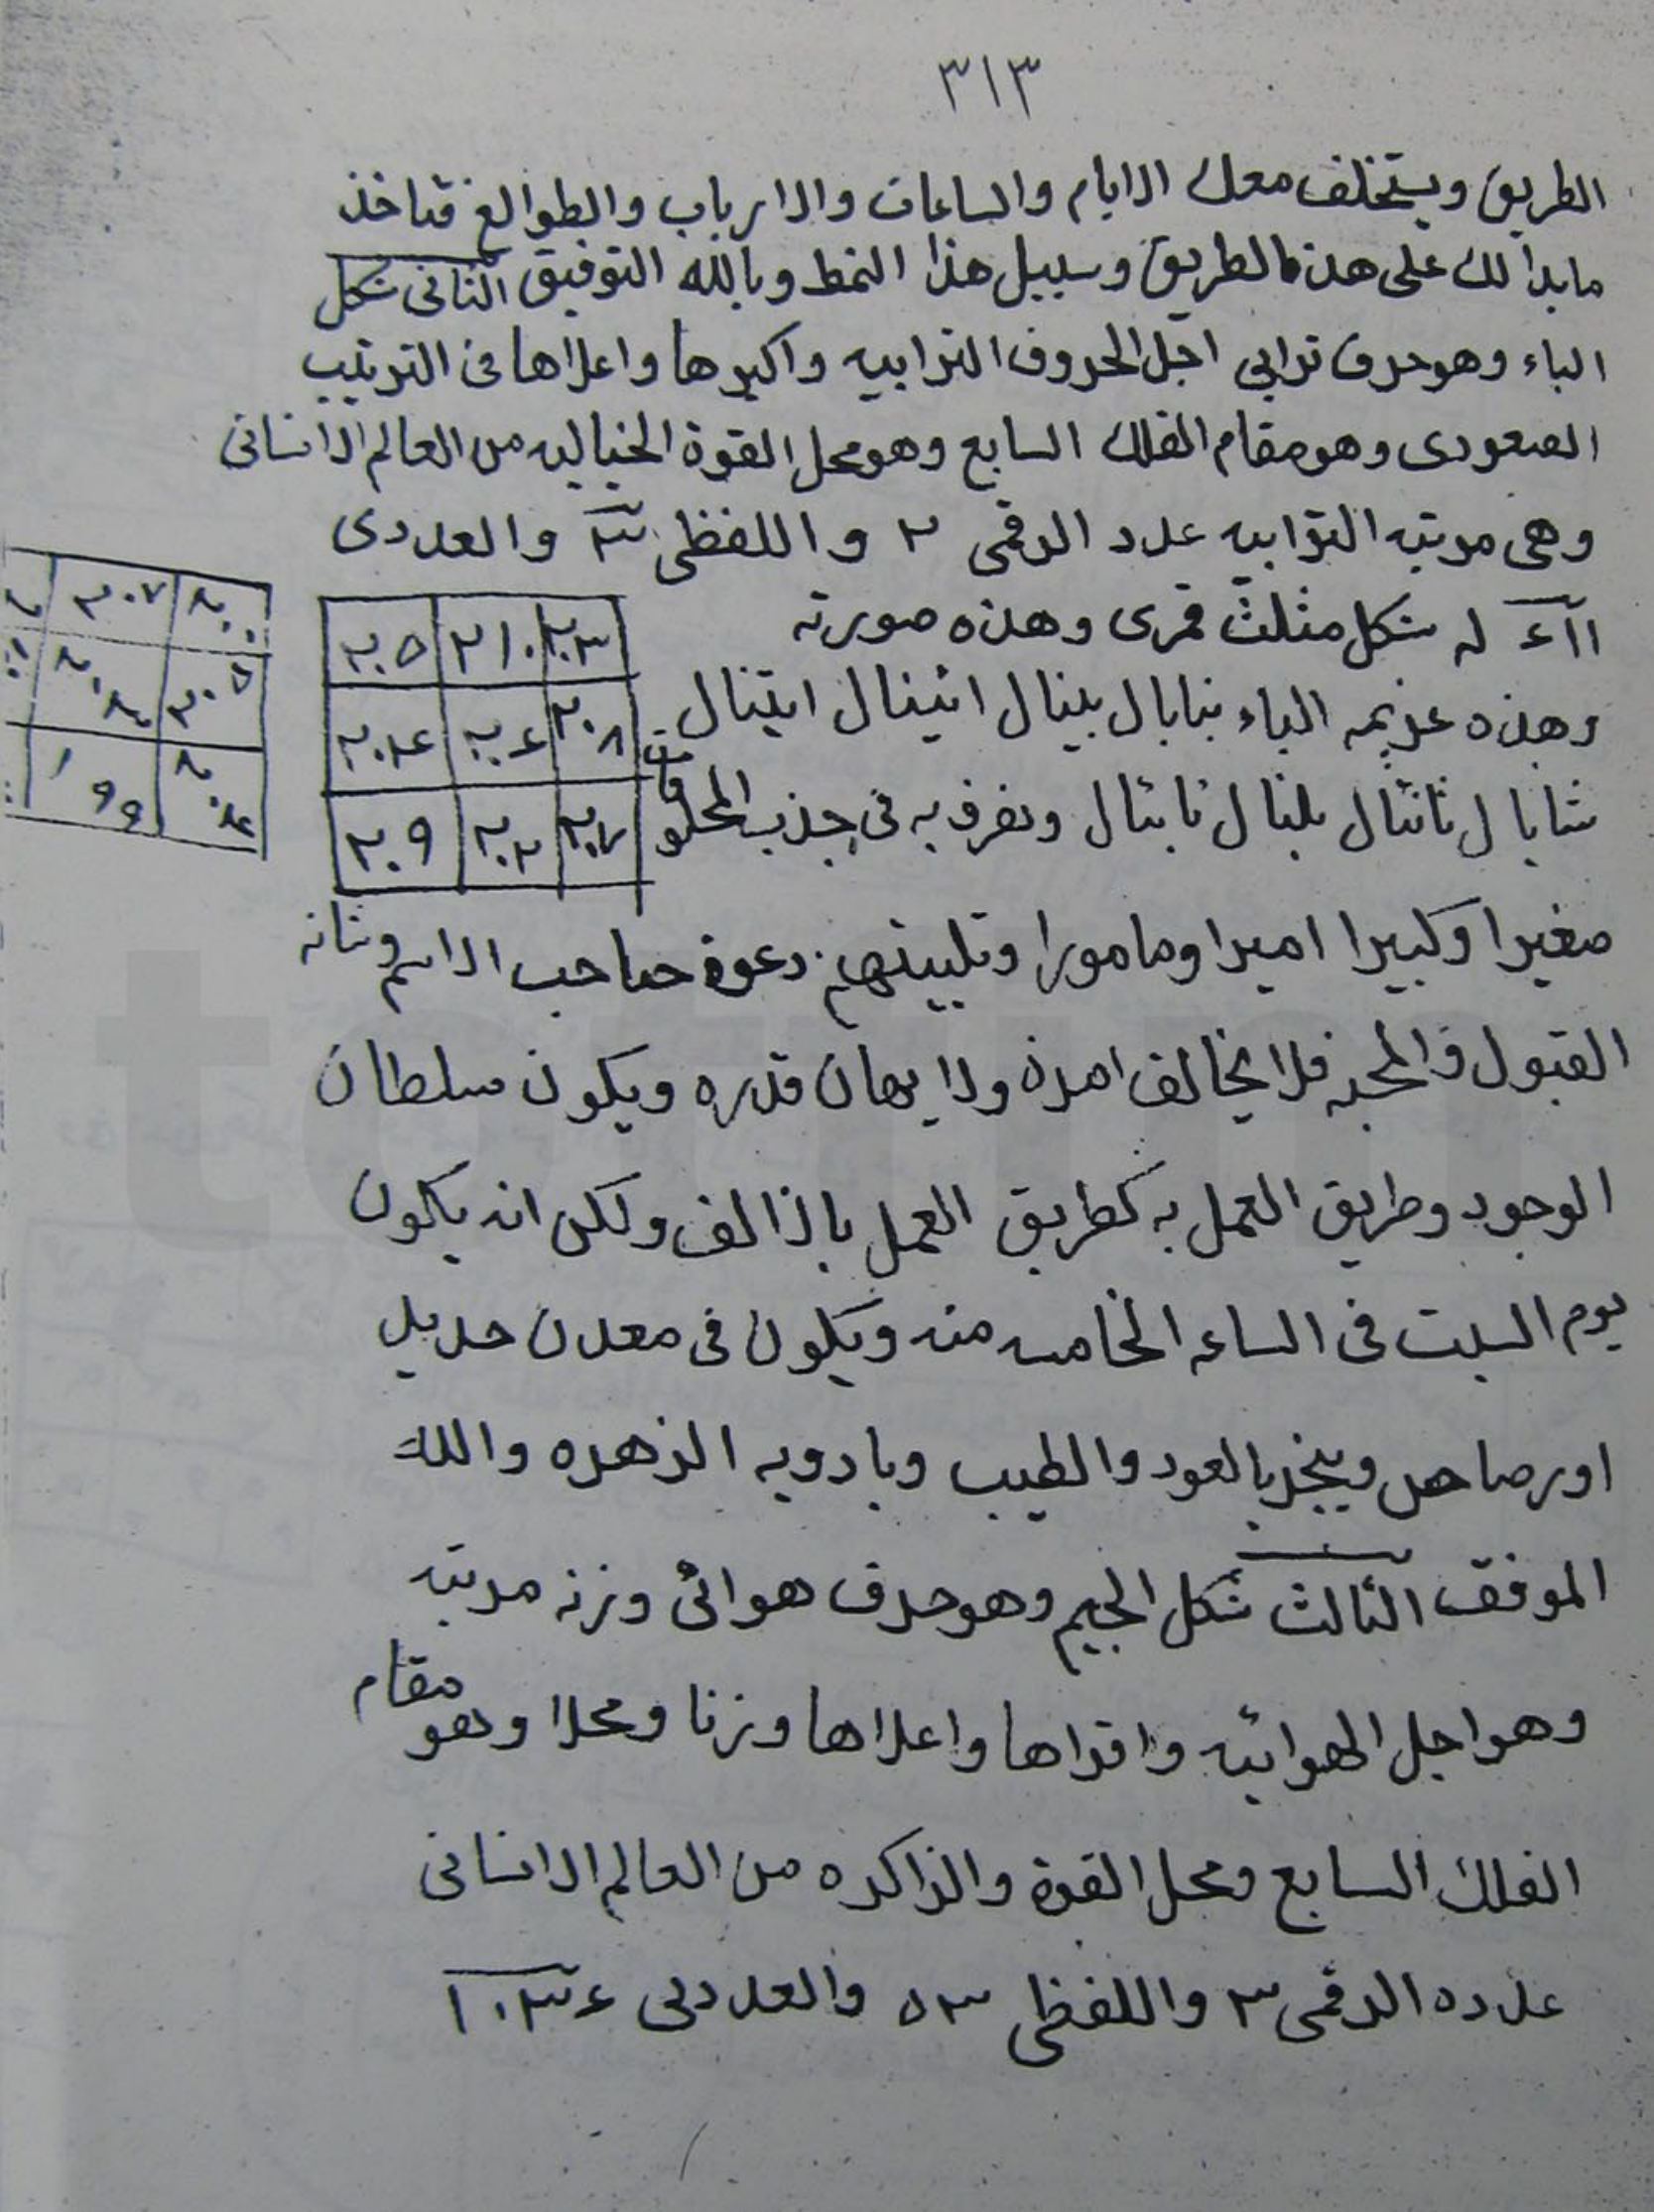 ٣١٣
الطريق ويستخلف معك الايام والساعات والارباب والطوالع فتاخذ
مابدا لك على هذه الطريق وسبيل هذا النمط وبالله التوفيق الثانى شكل
الباء وهو حرف ترابى اجل الحروف الترابيه واكبرها واعلاها فى الترتيب
الصعودى وهو مقام الفلك السابع وهو محل القوة الخياليه من العالم الانسانى
وهى مرتبه الترابيه عدد الرقمى ٢ و اللفظى ٣ والعددى
له شكل مثلث قمرى وهذه صورته
٢٠٣ ٢١٠ ٢٠٥
٢٠٨ ٢٠٦ ٢٠٤
٢٠٧ ٢٠٢ ٢٠٩
٢٠٧
١٩٩
وهذه عزيمه الباء بنابال بينال اثينال ايتنال
شابال ثانئال بلنال نابئال وتصرف به فى جذب المخلوقات
صغيرا وكبيرا اميرا ومامورا وتلبيتهم دعوة صاحب الاسم وشانه
القبول والمحبه فلا يخالف امره ولا يهان قدره ويكون سلطان
الوجود وطريق العمل به كطريق العمل بالالف ولكن انه يكون
يوم السبت فى الساعه الخامسه منه ويكون فى معدن حديد
اورصاص ويبخر بالعود والطيب وبادويه الزهره والله
الموفق الثالث شكل الجيم وهو حرف هوائى وزنه مرتبه
وهو اجل الهوائيه واقواها واعلاها وزنا ومحلا وهو مقام
الفلك السابع ومحل القوة والذاكره من العالم الانسانى
عدده الرقمى ٣ واللفظى ٥٣ والعددى